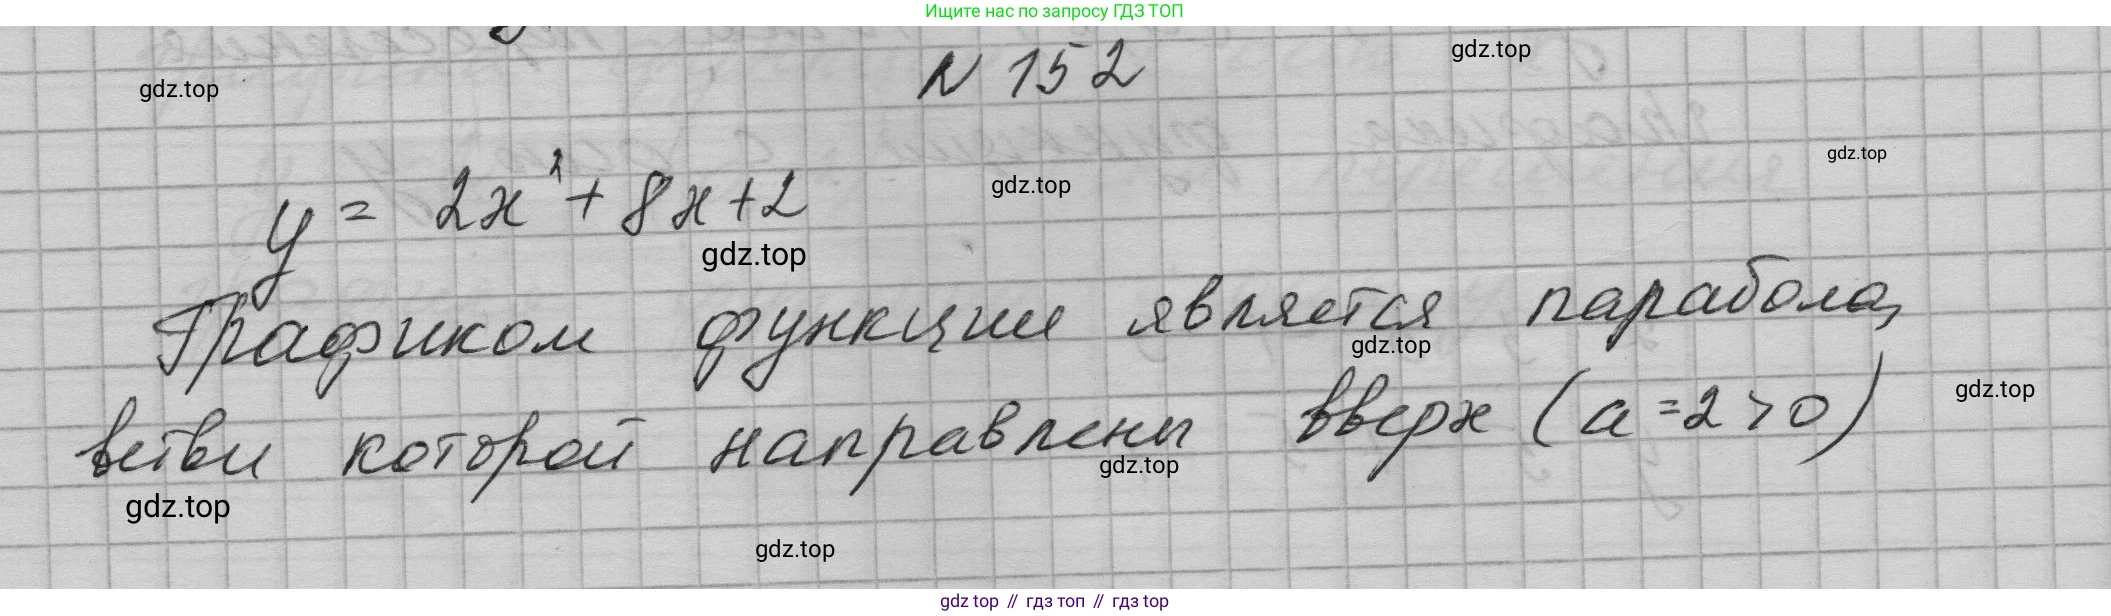 Ищите нас по запросу ГДЗ ТОП
N 152
gdz.top
gdz.top
gdz.top
y = 2x² + 8x + 2
gdz.top
gdz.top
Графиком функции является парабола,
gdz.top
ветви которой направлены вверх (a = 2 > 0)
gdz.top
gdz.top
gdz.top
gdz.top
gdz top // гдз топ // гдз top